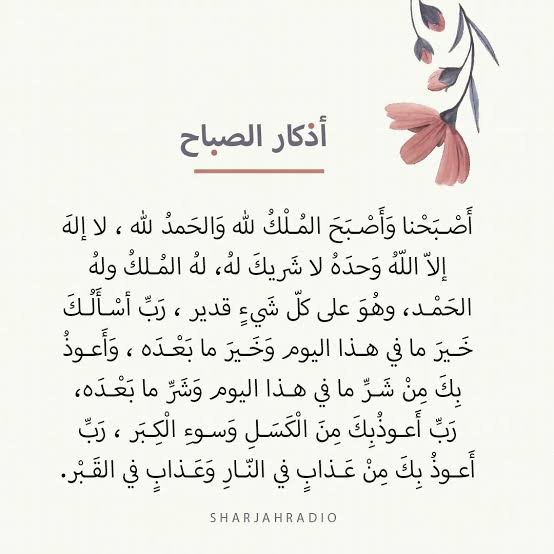 أذكار الصباح
أَصْـبَحْنا وَأَصْـبَحَ المُـلْكُ لله وَالحَمدُ لله ، لا إلهَ
إلاّ اللّهُ وَحدَهُ لا شَريكَ لهُ، لهُ المُـلكُ ولهُ
الحَمْـد، وهُوَ على كلّ شَيءٍ قدير ، رَبِّ أسْـأَلُـكَ
خَـيرَ ما في هـذا اليوم وَخَـيرَ ما بَعْـدَه ، وَأَعـوذُ
بِكَ مِنْ شَـرِّ ما في هـذا اليوم وَشَرِّ ما بَعْـدَه،
رَبِّ أَعـوذُبِكَ مِنَ الْكَسَـلِ وَسـوءِ الْكِـبَر ، رَبِّ
أَعـوذُ بِكَ مِنْ عَـذابٍ في النّـارِ وَعَـذابٍ في القَـبْر.
SHARJAHRADIO